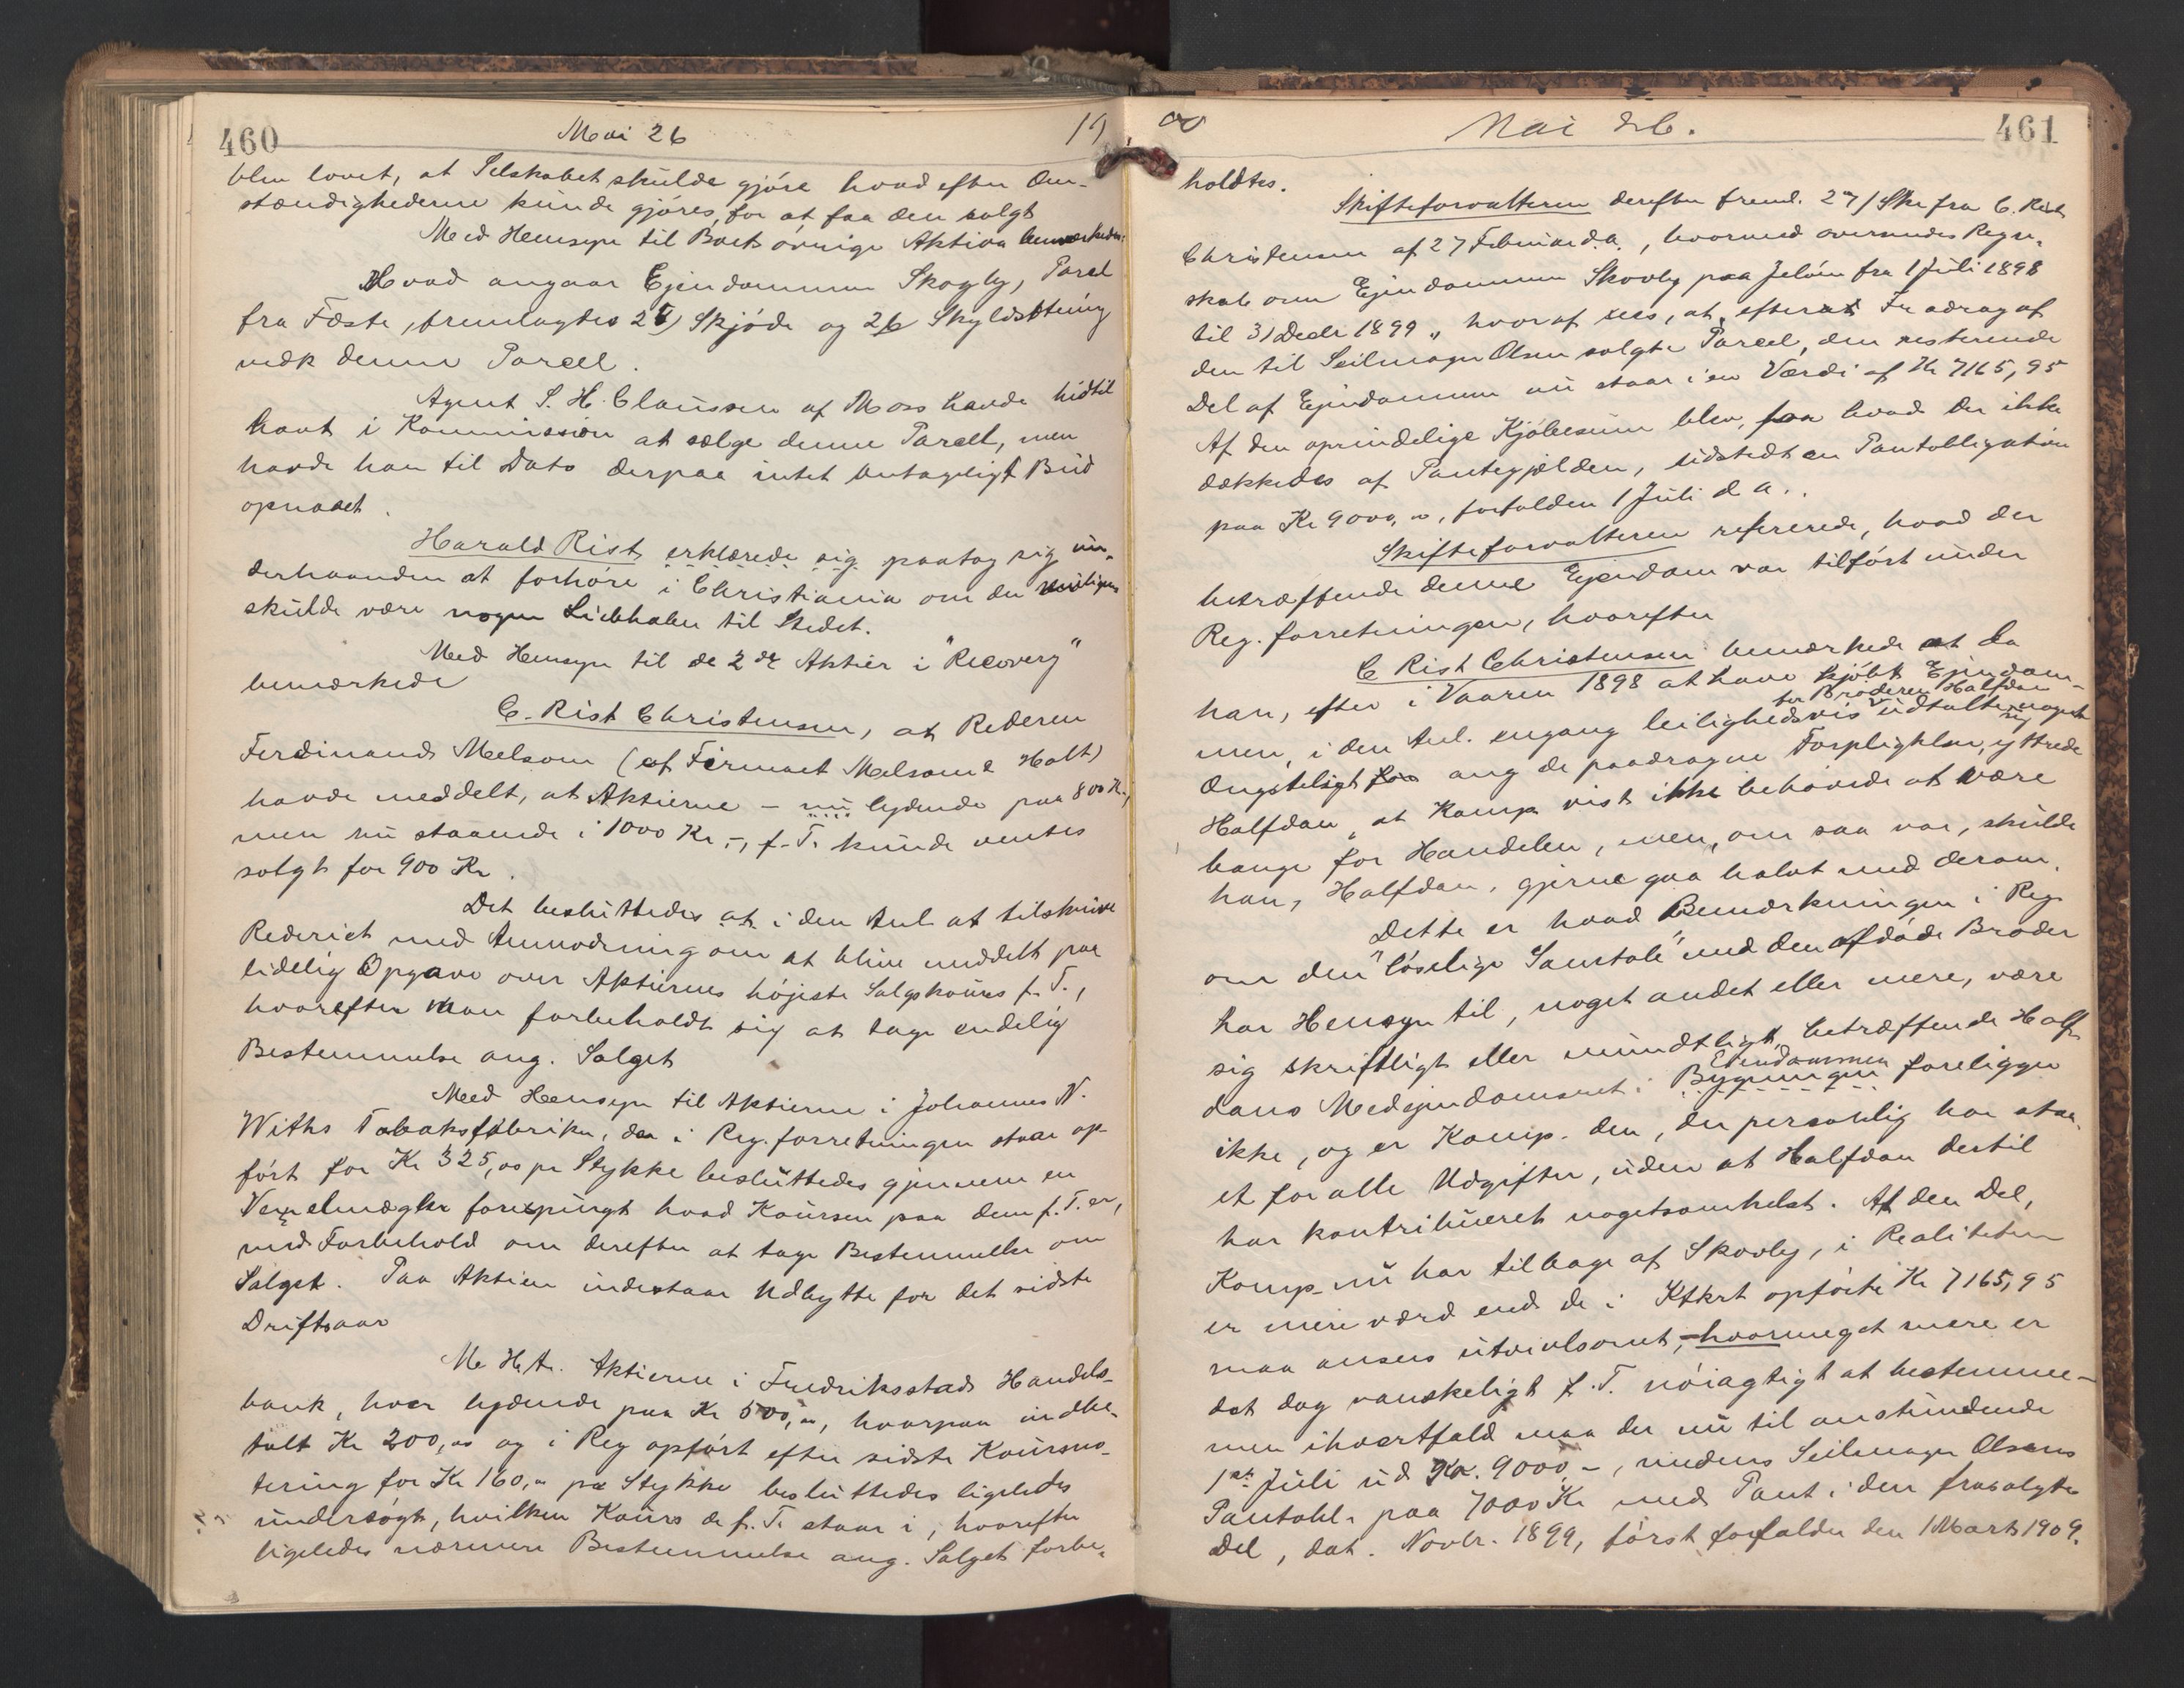 460
Mai 26
19
blev lovet, at Selskabet skulde gjöre hvad efter Om-
stændighederne kunde gjöres, for at faa den solgt
Med Hensyn til Boets övrige Aktiva bemærkedes:
Hvad angaar Ejendommen Skogly, Parcel
fra Fæste, fremlagdes 25) Skjöde og 26 Skyldsætning
vedk denne Parcel.
Agent S. H. Claussen af Moss havde hidtil
havt i Kommission at sælge denne Parcel, men
havde han til Dato derpaa intet antageligt Bud
opnaaet.
Harald Rist erklærede sig paatog sig un-
derhaanden at forhöre i Christiania om der muligens
skulde være nogen Liebhaber til Stedet.
Med Hensyn til de 2de Aktier i "Recovery"
bemærkede
C. Rist Christensen, at Rederen
Ferdinand Melsom (af Firmaet Melsom & Holt)
havde meddelt, at Aktierne - nu lydende paa 800 Kr.,
men nu staaende i 1000 Kr -, f. T. kunde ventes
solgt for 900 Kr.
Det besluttedes at i den Anl at tilskrive
Rederiet med Anmodning om at blive meddelt paa
lidelig Opgave over Aktiernes höjeste Salgskours f. T.,
hvorefter man forbeholdt sig at tage endelig
Bestemmelse ang. Salget
Med Hensyn til Aktierne i Johannes N.
Withs Tobaksfabrikk, der i Reg. forretningen staar op-
fört for Kr 325,00 pr Stykke besluttedes gjennem en
Vexelmægler forespurgt hvad Koursen paa dem f. T. er,
med Forbehold om derefter at tage Bestemmelse om
Salget. Paa Aktien indestaar Udbytte for det sidste
Driftsaar
M. H. t. Aktierne i Fredriksstads Handels-
bank, hver lydende paa Kr 500,00, hvorpaa indbe-
talt Kr 200,00 og i Reg opfört efter sidste Koursno-
tering for Kr 160,00 pr Stykke besluttedes ligeledes
undersögt, hvilken Kours de f. T. staar i, hvorefter
ligeledes nærmere Bestemmelse ang. Salget forbe-
00
Mai 26.
461
holdtes.
Skifteforvalteren derefter freml. 27) Skr fra C. Rist
Christensen af 27 Februar d.a., hvormed oversendes Regn-
skab om Ejendommen Skovly paa Jelöen fra 1 Juli 1898
til 31 Decbr 1899, hvoraf sees, at efterat Fradrag af
den til Seilmager Olsen solgte Parcel, den resterende
Del af Ejendommen nu staar i en Værdi af Kr 7165,95
Af den oprindelige Kjöbesum blev, for hvad der ikke
dækkedes af Pantegjælden, udstedt en Pantobligation
paa Kr 9000,00, forfalden 1 Juli d. a..
Skifteforvalteren refererede, hvad der
betræffende denne Ejendom var tilfört under
Reg. forretningen, hvorefter
C Rist Christensen bemærkede at da
han, efter i Vaaren 1898 at have kjöbt Ejendom-
for Broderen Halfdan
men, i den Anl. engang leilighedsvis udtalte sig noget
Ængsteligt ang de paadragne Forpligtelser, yttrede
Halfdan, at Komp vist ikke behövede at være
bange for Handelen, men, om saa var, skulde
han, Halfdan, gjerne gaa halvt med derom.
Dette er hvad Bemærkningen i Reg
om den "löselige Samtale" med den afdöde Broder
har Hensyn til, noget andet eller mere, være
sig skriftligt eller mundtligt, betræffende Half-
Eiendommen
dans Medejendomsret i Bygningen foreligger
ikke, og er Komp. den, der personlig har staa-
et for alle Udgifter, uden at Halfdan dertil
har kontribueret nogetsomhelst. At den Del,
Komp. nu har tilbage af Skovly, i Realiteten
er mere værd end de i Ktkrt opförte Kr 7165,95
maa ansees utvivlsomt, - hvormeget mere er
det dog vanskeligt f. T. nöiagtigt at bestemme -
men ihvertfald maa der nu til anstundende
1ste Juli ud Kr. 9000 -, medens Seilmager Olsens
Pantobl. paa 7000 Kr med Pant i den frasolgte
Del, dat. Novbr. 1899, först forfalder den 1 Marts 1909.